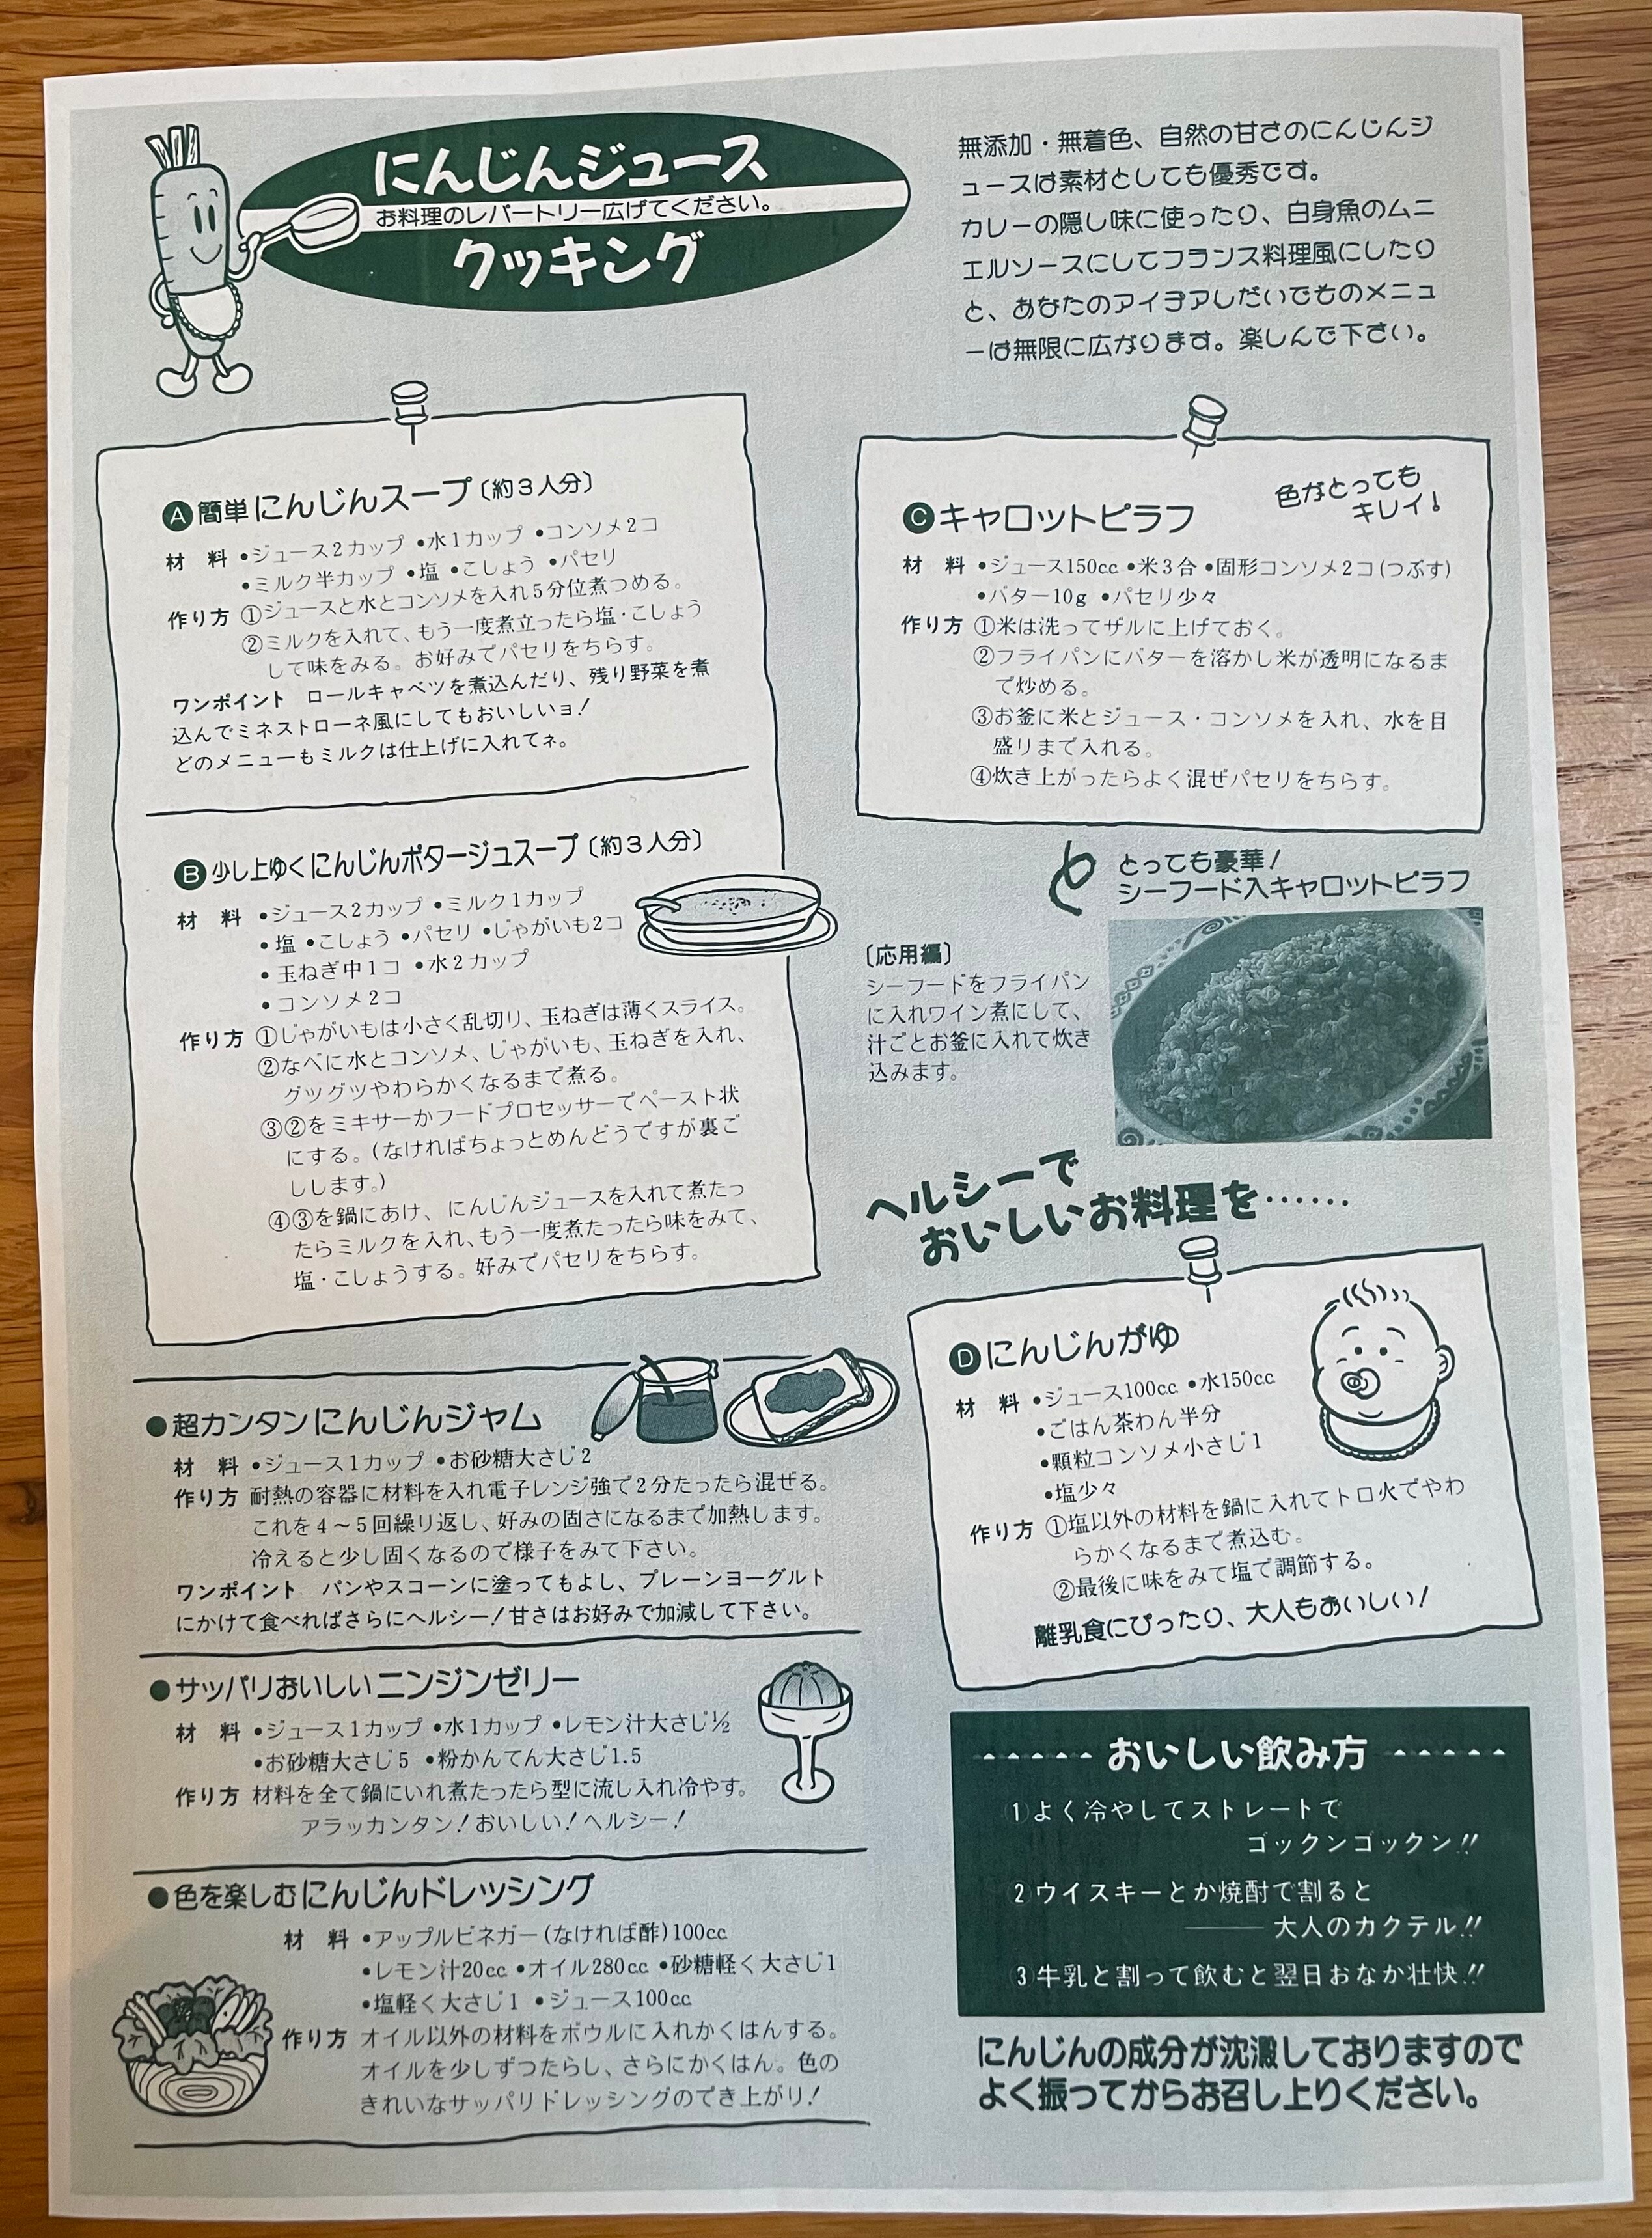 にんじんジュース
お料理のレパートリー広げてください。
クッキング
無添加・無着色、自然の甘さのにんじんジ
ュースは素材としても優秀です。
カレーの隠し味に使ったり、白身魚のムニ
エルソースにしてフランス料理風にしたり
と、あなたのアイデアしだいでものメニュ
ーは無限に広がります。楽しんで下さい。
A簡単にんじんスープ〔約3人分〕
材 料 •ジュース2カップ •水1カップ •コンソメ2コ
•ミルク半カップ •塩 •こしょう •パセリ
作り方 ①ジュースと水とコンソメを入れ5分位煮つめる。
②ミルクを入れて、もう一度煮立ったら塩・こしょう
して味をみる。お好みでパセリをちらす。
ワンポイント ロールキャベツを煮込んだり、残り野菜を煮
込んでミネストローネ風にしてもおいしいョ!
どのメニューもミルクは仕上げに入れてネ。
B少し上ゆくにんじんポタージュスープ〔約3人分〕
材 料 •ジュース2カップ •ミルク1カップ
•塩 •こしょう •パセリ •じゃがいも2コ
•玉ねぎ中1コ •水2カップ
•コンソメ2コ
作り方 ①じゃがいもは小さく乱切り、玉ねぎは薄くスライス。
②なべに水とコンソメ、じゃがいも、玉ねぎを入れ、
グツグツやわらかくなるまで煮る。
③②をミキサーかフードプロセッサーでペースト状
にする。(なければちょっとめんどうですが裏ご
しします。)
④③を鍋にあけ、にんじんジュースを入れて煮たっ
たらミルクを入れ、もう一度煮たったら味をみて、
塩・こしょうする。好みでパセリをちらす。
●超カンタンにんじんジャム
材 料 •ジュース1カップ •お砂糖大さじ2
作り方 耐熱の容器に材料を入れ電子レンジ強で2分たったら混ぜる。
これを4〜5回繰り返し、好みの固さになるまで加熱します。
冷えると少し固くなるので様子をみて下さい。
ワンポイント パンやスコーンに塗ってもよし、プレーンヨーグルト
にかけて食べればさらにヘルシー!甘さはお好みで加減して下さい。
●サッパリおいしいニンジンゼリー
材 料 •ジュース1カップ •水1カップ •レモン汁大さじ½
•お砂糖大さじ5 •粉かんてん大さじ1.5
作り方 材料を全て鍋にいれ煮たったら型に流し入れ冷やす。
アラッカンタン!おいしい!ヘルシー!
●色を楽しむにんじんドレッシング
材 料 •アップルビネガー(なければ酢)100cc
•レモン汁20cc •オイル280cc •砂糖軽く大さじ1
•塩軽く大さじ1 •ジュース100cc
作り方 オイル以外の材料をボウルに入れかくはんする。
オイルを少しずつたらし、さらにかくはん。色の
きれいなサッパリドレッシングのでき上がり!
Cキャロットピラフ
色がとっても
キレイ!
材 料 •ジュース150cc •米3合 •固形コンソメ2コ(つぶす)
•バター10g •パセリ少々
作り方 ①米は洗ってザルに上げておく。
②フライパンにバターを溶かし米が透明になるま
で炒める。
③お釜に米とジュース・コンソメを入れ、水を目
盛りまで入れる。
④炊き上がったらよく混ぜパセリをちらす。
とっても豪華!
シーフード入キャロットピラフ
〔応用編〕
シーフードをフライパン
に入れワイン煮にして、
汁ごとお釜に入れて炊き
込みます。
ヘルシーで
おいしいお料理を……
Dにんじんがゆ
材 料 •ジュース100cc •水150cc
•ごはん茶わん半分
•顆粒コンソメ小さじ1
•塩少々
作り方 ①塩以外の材料を鍋に入れてトロ火でやわ
らかくなるまで煮込む。
②最後に味をみて塩で調節する。
離乳食にぴったり、大人もおいしい!
おいしい飲み方
1よく冷やしてストレートで
ゴックンゴックン!!
2ウイスキーとか焼酎で割ると
――大人のカクテル!!
3牛乳と割って飲むと翌日おなか壮快!!
にんじんの成分が沈澱しておりますので
よく振ってからお召し上りください。